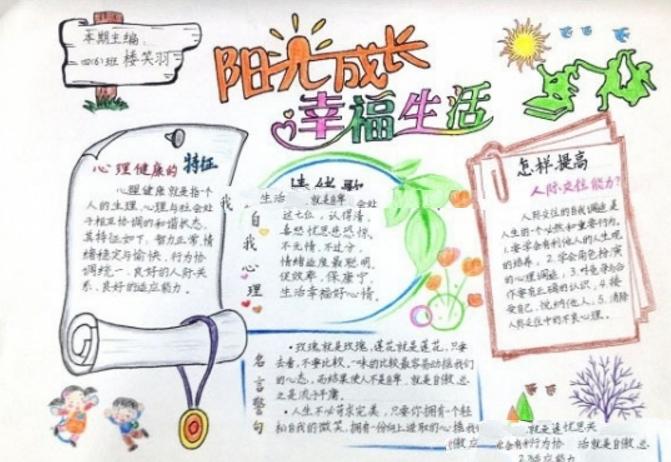 本期主编:
四(6)班 楼笑羽
阳光成长
幸福生活
心理健康的 特征
心理健康就是指个
人的生理、心理与社会处
于相互协调的和谐状态,
其特征如下:智力正常,情
绪稳定与愉快,行为协
调统一,良好的人际关
系,良好的适应能力。
我
自
我
心
理
生活 就是自卑 会处
这七位,认得清,
喜怒忧思悲恐惊。
不无情,不过分,
情绪适度最聪明。
促效率,保康宁,
生活幸福好心情。
怎样提高
人际交往能力?
人际交往的自我调适是
人生的一个必然和重要行为。
1.要学会有利他人的人生观
的培养;2.学会角色扮演
的心理调适;3.对竞争与合
作要有正确的认识;4.接
受自己,悦纳他人;5.清除
人际交往中的不良心理。
名
言
警
句
•玫瑰就是玫瑰,莲花就是莲花,只要
去看,不要比较。一味的比较最容易动摇我们
的心态,而结果使人不是自卑,就是自傲,总
之是流于平庸。
•人生不必苛求完美,只要你拥有一个轻
松自我的微笑,拥有一份向上进取的心
就是
社会有利 行为协 活就是自卑,